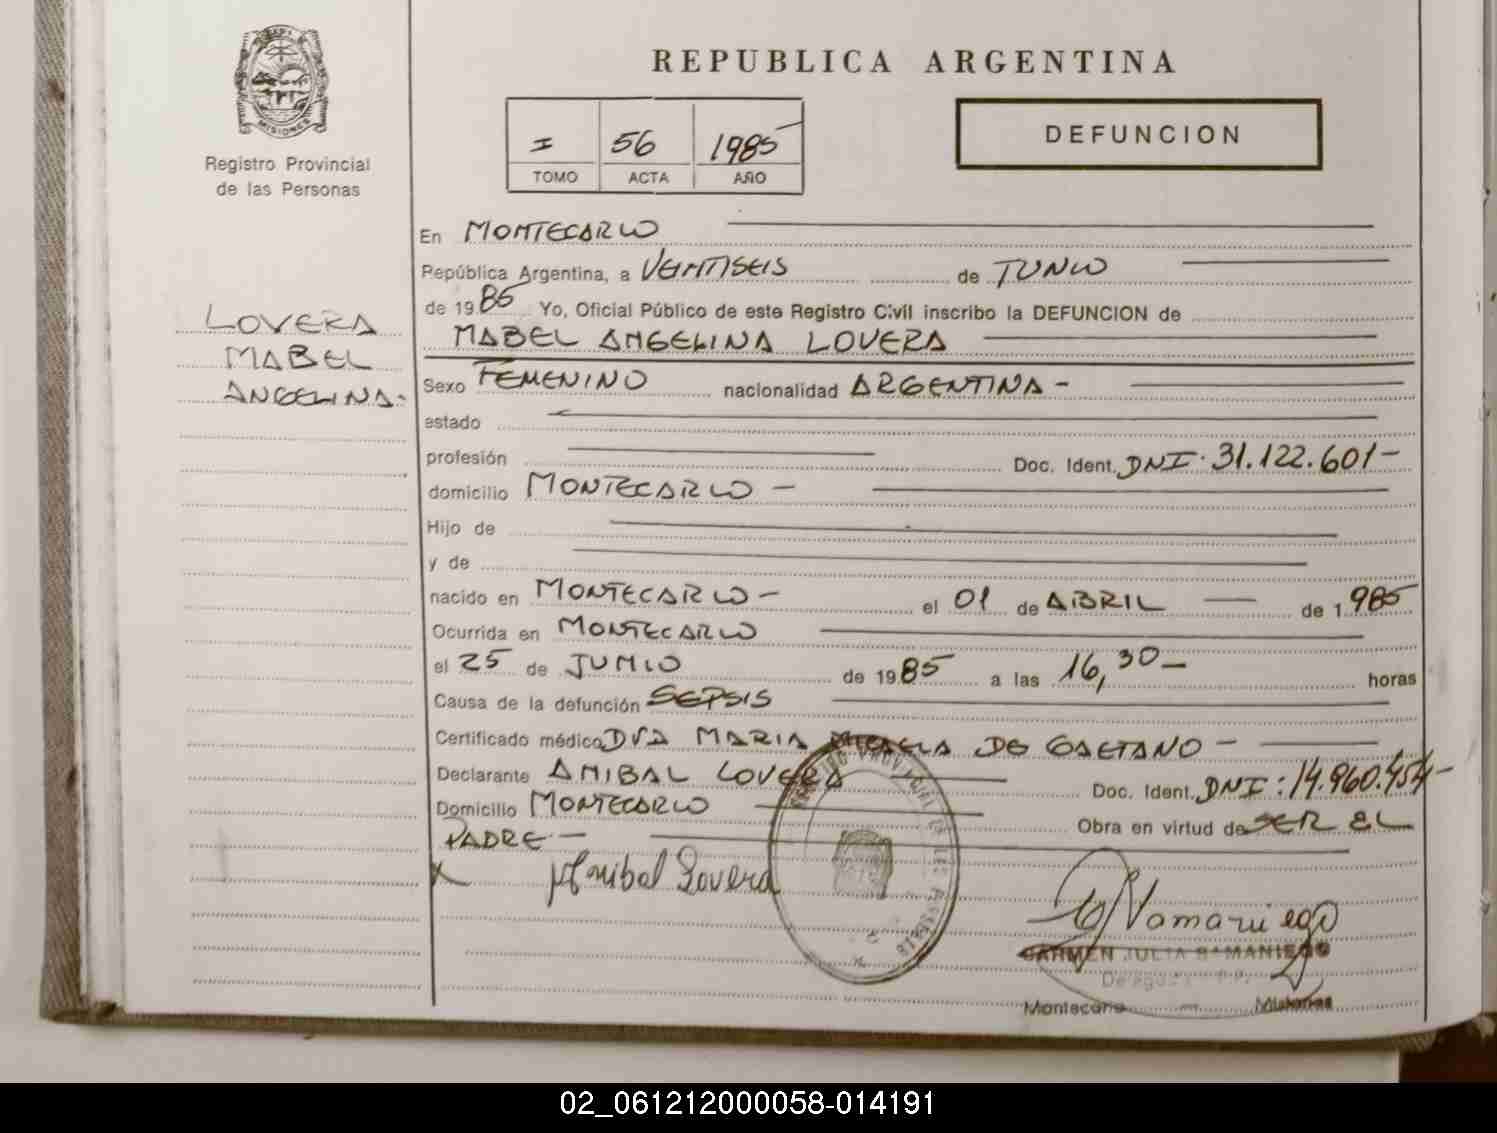 MISIONES
Registro Provincial
de las Personas
REPUBLICA ARGENTINA
I 56 1985
TOMO ACTA AÑO
DEFUNCION
LOVERA
MABEL
ANGELINA.-
En MONTECARLO
República Argentina, a VEINTISEIS de JUNIO
de 1985 Yo, Oficial Público de este Registro Civil inscribo la DEFUNCION de
MABEL ANGELINA LOVERA
Sexo FEMENINO nacionalidad ARGENTINA -
estado
profesión Doc. Ident. DNI. 31.122.601-
domicilio MONTECARLO -
Hijo de
y de
nacido en MONTECARLO - el 01 de ABRIL de 1.985
Ocurrida en MONTECARLO
el 25 de JUNIO de 1985 a las 16,30- horas
Causa de la defunción SEPSIS
Certificado médico DRA MARIA MICAELA DE GAETANO -
Declarante ANIBAL LOVERA Doc. Ident. DNI: 14.960.454-
Domicilio MONTECARLO Obra en virtud de SER EL
PADRE -
X Anibal Lovera
REGISTRO PROVINCIAL DE LAS PERSONAS
Samaniego
CARMEN JULIA SAMANIEGO
Montecarlo - Misiones
02_061212000058-014191